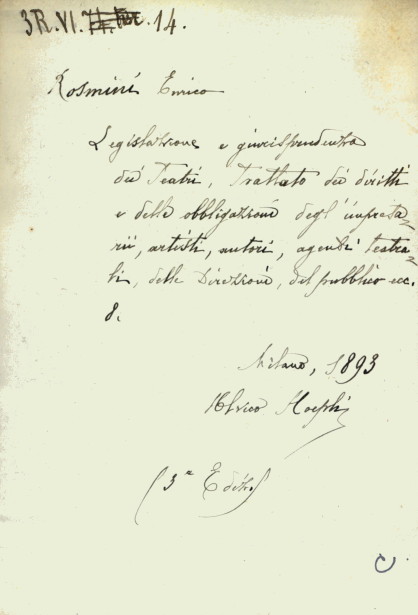 3R.VI. 14.
Rosmini Enrico
Legislazione e giurisprudenza
dei Teatri, Trattato dei diritti
e delle obbligazioni degl' impresa-
rii, artisti, autori, agenti teatra-
li, delle Direzioni, del pubblico ecc.
8.
Milano, 1893
Ulrico Hoepli
(3ª Ediz)
C